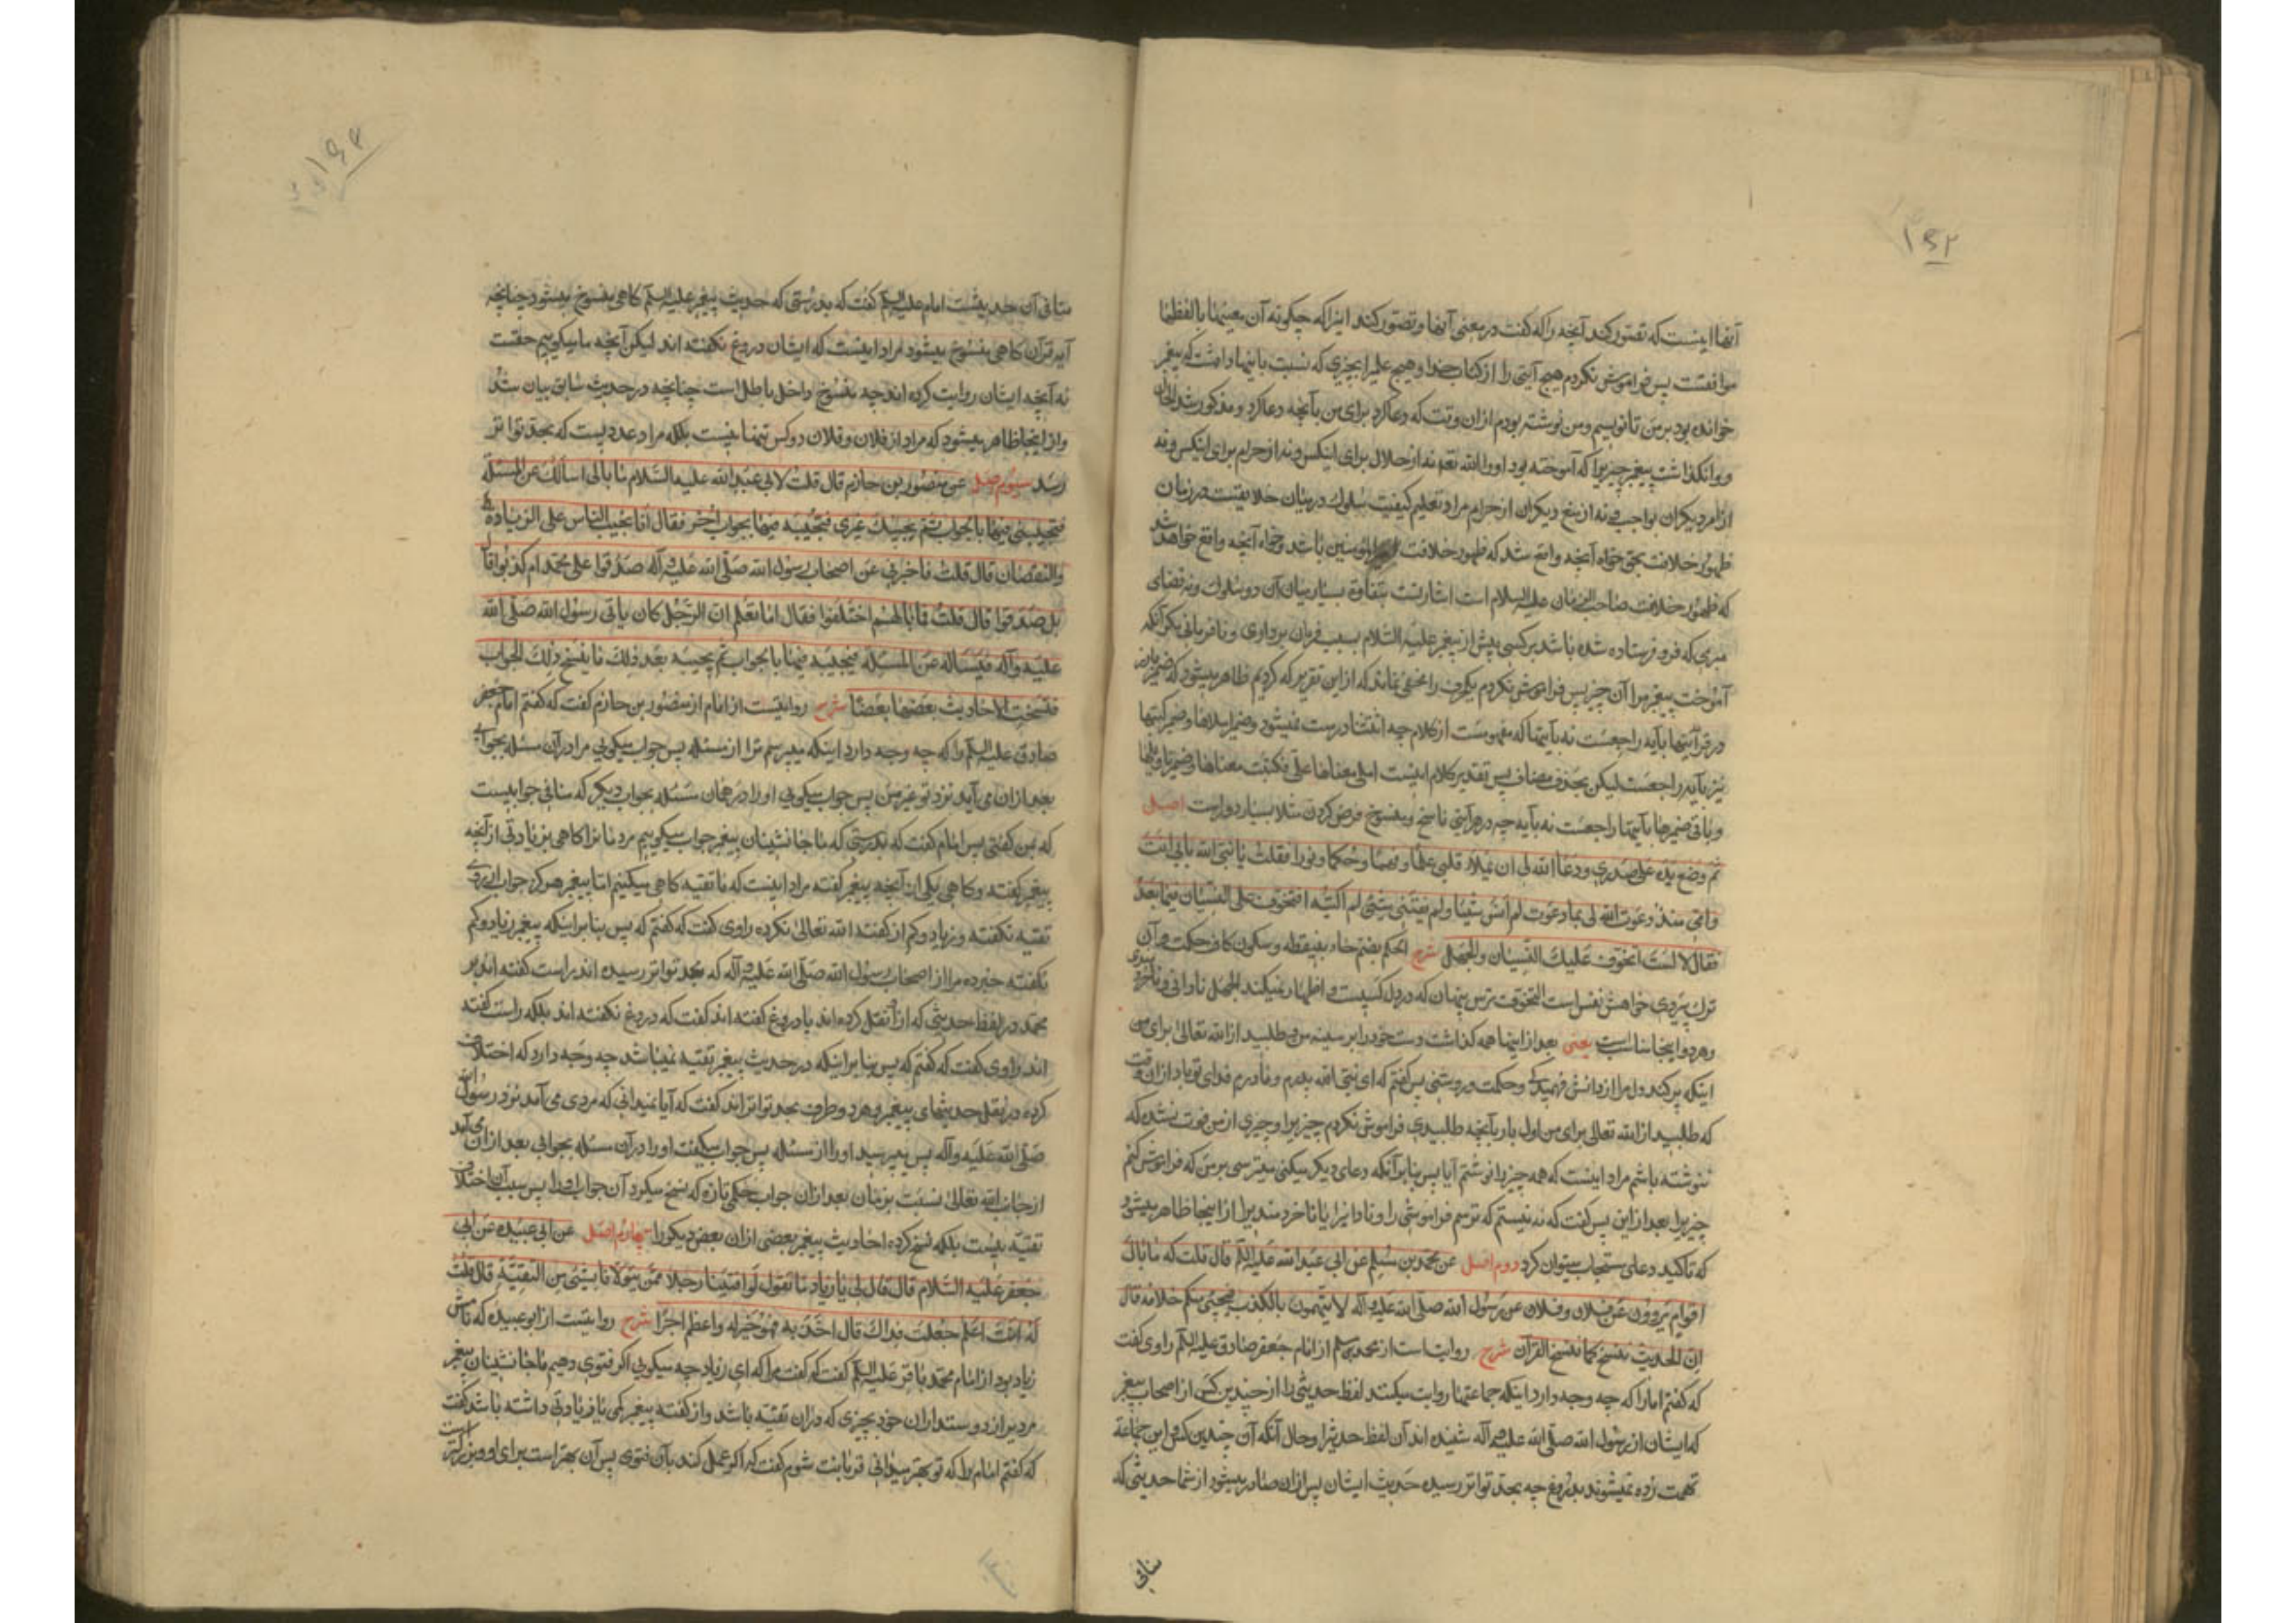 ۱۹۲
آنها اینست که تصور کند آنچه را که گفت در معنی آنها و تصور کند اینرا که چگونه آن معنیها با لفظها
موافقست پس فراموش نکردم هیچ آیتی را از کتاب خدا و هیچ علمرا بچیزی که نسبت باینها داشت که پیغمبر
خوانده بود بر من تا نویسم و من نوشته بودم ازان وقت که دعا کرد برای من بآنچه دعا کرد و مذکور شد الحال
و وانگذاشت پیغمبر چیزیرا که آموخته بود اورا الله تعم نه از حلال برای اینکس و نه از حرام برای اینکس و نه
از امر دیگران بواجب و نه از نهی دیگران از حرام مراد تعلیم کیفیت سلوک در میان خلایقست در زمان
ظهور خلافت بحق خواه آنچه واقع شد که ظهور خلافت امیرالمؤمنین باشد و خواه آنچه واقع خواهد شد
که ظهور خلافت صاحب الزمان علیه السلام است اشارتست بتفاوت بسیار میان آن دو سلوک و نه قضای
مبرمی که فرو فرستاده شده باشد بر کسی پیش از پیغمبر علیه السلام بسبب فرمان برداری و نافرمانی مگر آنکه
آموخت پیغمبر مرا آن چیز پس فراموش نکردم یکحرف را مخفی نماند که از این تقریر که کردیم ظاهر میشود که ضمیر بارز
در قرأنیها بآیه راجعست نه بآیتها که مفهومست از کلام چه استثنا درست نمیشود و ضمیر املاها و ضمیر کتبتها
نیز بآیه راجعست لیکن بحذف مضاف پس تقدیر کلام اینست املی معناها علی فکتبت معناها و ضمیر تاویلها
و باقی ضمیرها بآیتها راجعست نه بآیه چه در هر آیتی ناسخ و منسوخ فرض کردن مثلا بسیار دوراست اصل
ثم وضع یده علی صدری و دعا الله لی ان یملاء قلبی علما و فهما و حکما و نورا فقلت یا نبی الله بابی انت
و امی منذ دعوت الله لی بما دعوت لم انس شیئا و لم یفتنی شئی لم اکتبه افتتخوف علی النسیان فیما بعد
فقال لا لست اتخوف علیک النسیان و الجهل شرح الحکم بضم حاء بینقطه و سکون کاف حکمت و آن
ترک پیروی خواهش نفس است التخوف ترس پنهان که در دل کسیست و اظهار نمیکند الجهل نادانی و ناخردمندی
و هر دو اینجا مناسبست یعنی بعد از اینها همه گذاشت دست خود را بر سینه من و طلبید از الله تعالی برای من
اینکه پر کند دل مرا از دانش و فهمیدگی و حکمت و روشنی پس گفتم که ای نبی الله پدرم و مادرم فدای تو باد ازان وقت
که طلبید از الله تعالی برای من اول بار بآنچه طلبیدی فراموش نکردم چیزیرا و چیزی از من فوت نشده که
ننوشته باشم مراد اینست که همه چیز را نوشتم آیا پس بنابر آنکه دعای دیگر میکنی میترسی بر من که فراموش کنم
چیزیرا بعد از این پس گفت که نه نیستم که ترسم فراموشی را و نادانیرا یا ناخردمندیرا از اینجا ظاهر میشود
که تاکید دعای مستجاب میتوان کرد دوم اصل عن محمد بن مسلم عن ابی عبد الله علیه السلم قال قلت له ما بال
اقوام یروون عن فلان و فلان عن رسول الله صلی الله علیه و آله لا یتهمون بالکذب فیجیئ منکم خلافه قال
ان الحدیث ینسخ کما ینسخ القرآن شرح روایت است از محمد بن مسلم از امام جعفر صادق علیه السلم راوی گفت
که گفتم امام را که چه وجه دارد اینکه جماعتها روایت میکنند لفظ حدیثی را از چندین کس از اصحاب پیغمبر
که ایشان از رسول الله صلی الله علیه و آله شنیده اند آن لفظ حدیثرا و حال آنکه آن چندین کس و این جماعة
تهمت زده نمیشوند بدروغ چه بحد تواتر رسیده حدیث ایشان پس ازان صادر میشود از شما حدیثی که
منافی
۱۹۳
منافی آن حدیثست امام علیه السلم گفت که بدرستی که حدیث پیغمبر علیه السلم گاهی منسوخ میشود چنانچه
آیه قرآن گاهی منسوخ میشود مراد اینست که ایشان دروغ نگفته اند لیکن آنچه ما میگوییم حقست
نه آنچه ایشان روایت کرده اند چه منسوخ داخل باطل است چنانچه در حدیث سابق بیان شد
و از اینجا ظاهر میشود که مراد از فلان و فلان دو کس تنها نیست بلکه مراد عددیست که بحد تواتر
رسد سیوم اصل عن منصور بن حازم قال قلت لابی عبد الله علیه السلام ما بالی اسألک عن المسئلة
فتجیبنی فیها بالجواب ثم یجیئک غیری فتجیبه فیها بجواب آخر فقال انا نجیب الناس علی الزیادة
والنقصان قال قلت فاخبرنی عن اصحاب رسول الله صلی الله علیه و آله صدقوا علی محمد ام کذبوا قال
بل صدقوا قال قلت فما بالهم اختلفوا فقال اما تعلم ان الرجل کان یاتی رسول الله صلی الله
علیه و آله فیسأله عن المسئلة فیجیبه فیها بالجواب ثم یجیبه بعد ذلک ما ینسخ ذلک الجواب
فنسخت الاحادیث بعضها بعضا شرح روایتست از امام از منصور بن حازم گفت که گفتم امام جعفر
صادق علیه السلم را که چه وجه دارد اینکه میپرسم ترا از مسئله پس جواب میگویی مرا در آن مسئله بجوابی
بعد ازان می آید نزد تو غیر من پس جواب میگویی اورا در همان مسئله بجواب دیگر که منافی جوابیست
که بمن گفتی پس امام گفت که بدرستی که ما جانشینان پیغمبر جواب میگوییم مردمانرا گاهی بزیادتی از آنچه
پیغمبر گفته و گاهی بکمی از آنچه پیغمبر گفته مراد اینست که ما تقیه گاهی میکنیم اما پیغمبر هرگز جواب از روی
تقیه نگفته و زیاد و کم از گفته الله تعالی نکرده راوی گفت که گفتم که پس بنابر اینکه پیغمبر زیاد و کم
نگفته خبر ده مرا از اصحاب رسول الله صلی الله علیه و آله که بحد تواتر رسیده اند راست گفته اند بر
محمد در لفظ حدیثی که از او نقل کرده اند یا دروغ گفته اند گفت که دروغ نگفته اند بلکه راست گفته
اند راوی گفت که گفتم که پس بنابر اینکه در حدیث پیغمبر تقیه نمیباشد چه وجه دارد که اختلاف
کرده در نقل حدیثهای پیغمبر و هر دو طرف بحد تواتراند گفت که آیا نمیدانی که مردی می آمد نزد رسول الله
صلی الله علیه و آله پس میپرسید اورا از مسئله پس جواب میگفت اورا در آن مسئله بجوابی بعد ازان می آمد
از جانب الله تعالی نسبت بزمان بعد ازان جواب حکمی تازه که نسخ میکرد آن جواب اول را پس سبب آن اختلاف
تقیه نیست بلکه نسخ کرده احادیث پیغمبر بعضی ازان بعض دیگر را چهارم اصل عن ابی عبیده عن ابی
جعفر علیه السلام قال قال لی یا زیاد ما تقول لو افتینا رجلا ممن یتولانا بشئی من التقیة قال قلت
له انت اعلم جعلت فداک قال ان اخذ به فهو خیر له و اعظم اجرا شرح روایتست از ابو عبیده که نامش
زیاد بود از امام محمد باقر علیه السلم گفت که گفت مرا که ای زیاد چه میگویی اگر فتوی دهیم ما جانشینان پیغمبر
مردیرا از دوستداران خود بچیزی که دران تقیه باشد و از گفته پیغمبر کمی یا زیادتی داشته باشد گفت
که گفتم امام را که تو بهتر میدانی قربانت شوم گفت که اگر عمل کند بآن فتوی پس آن بهتر است برای او و بزرگتر است